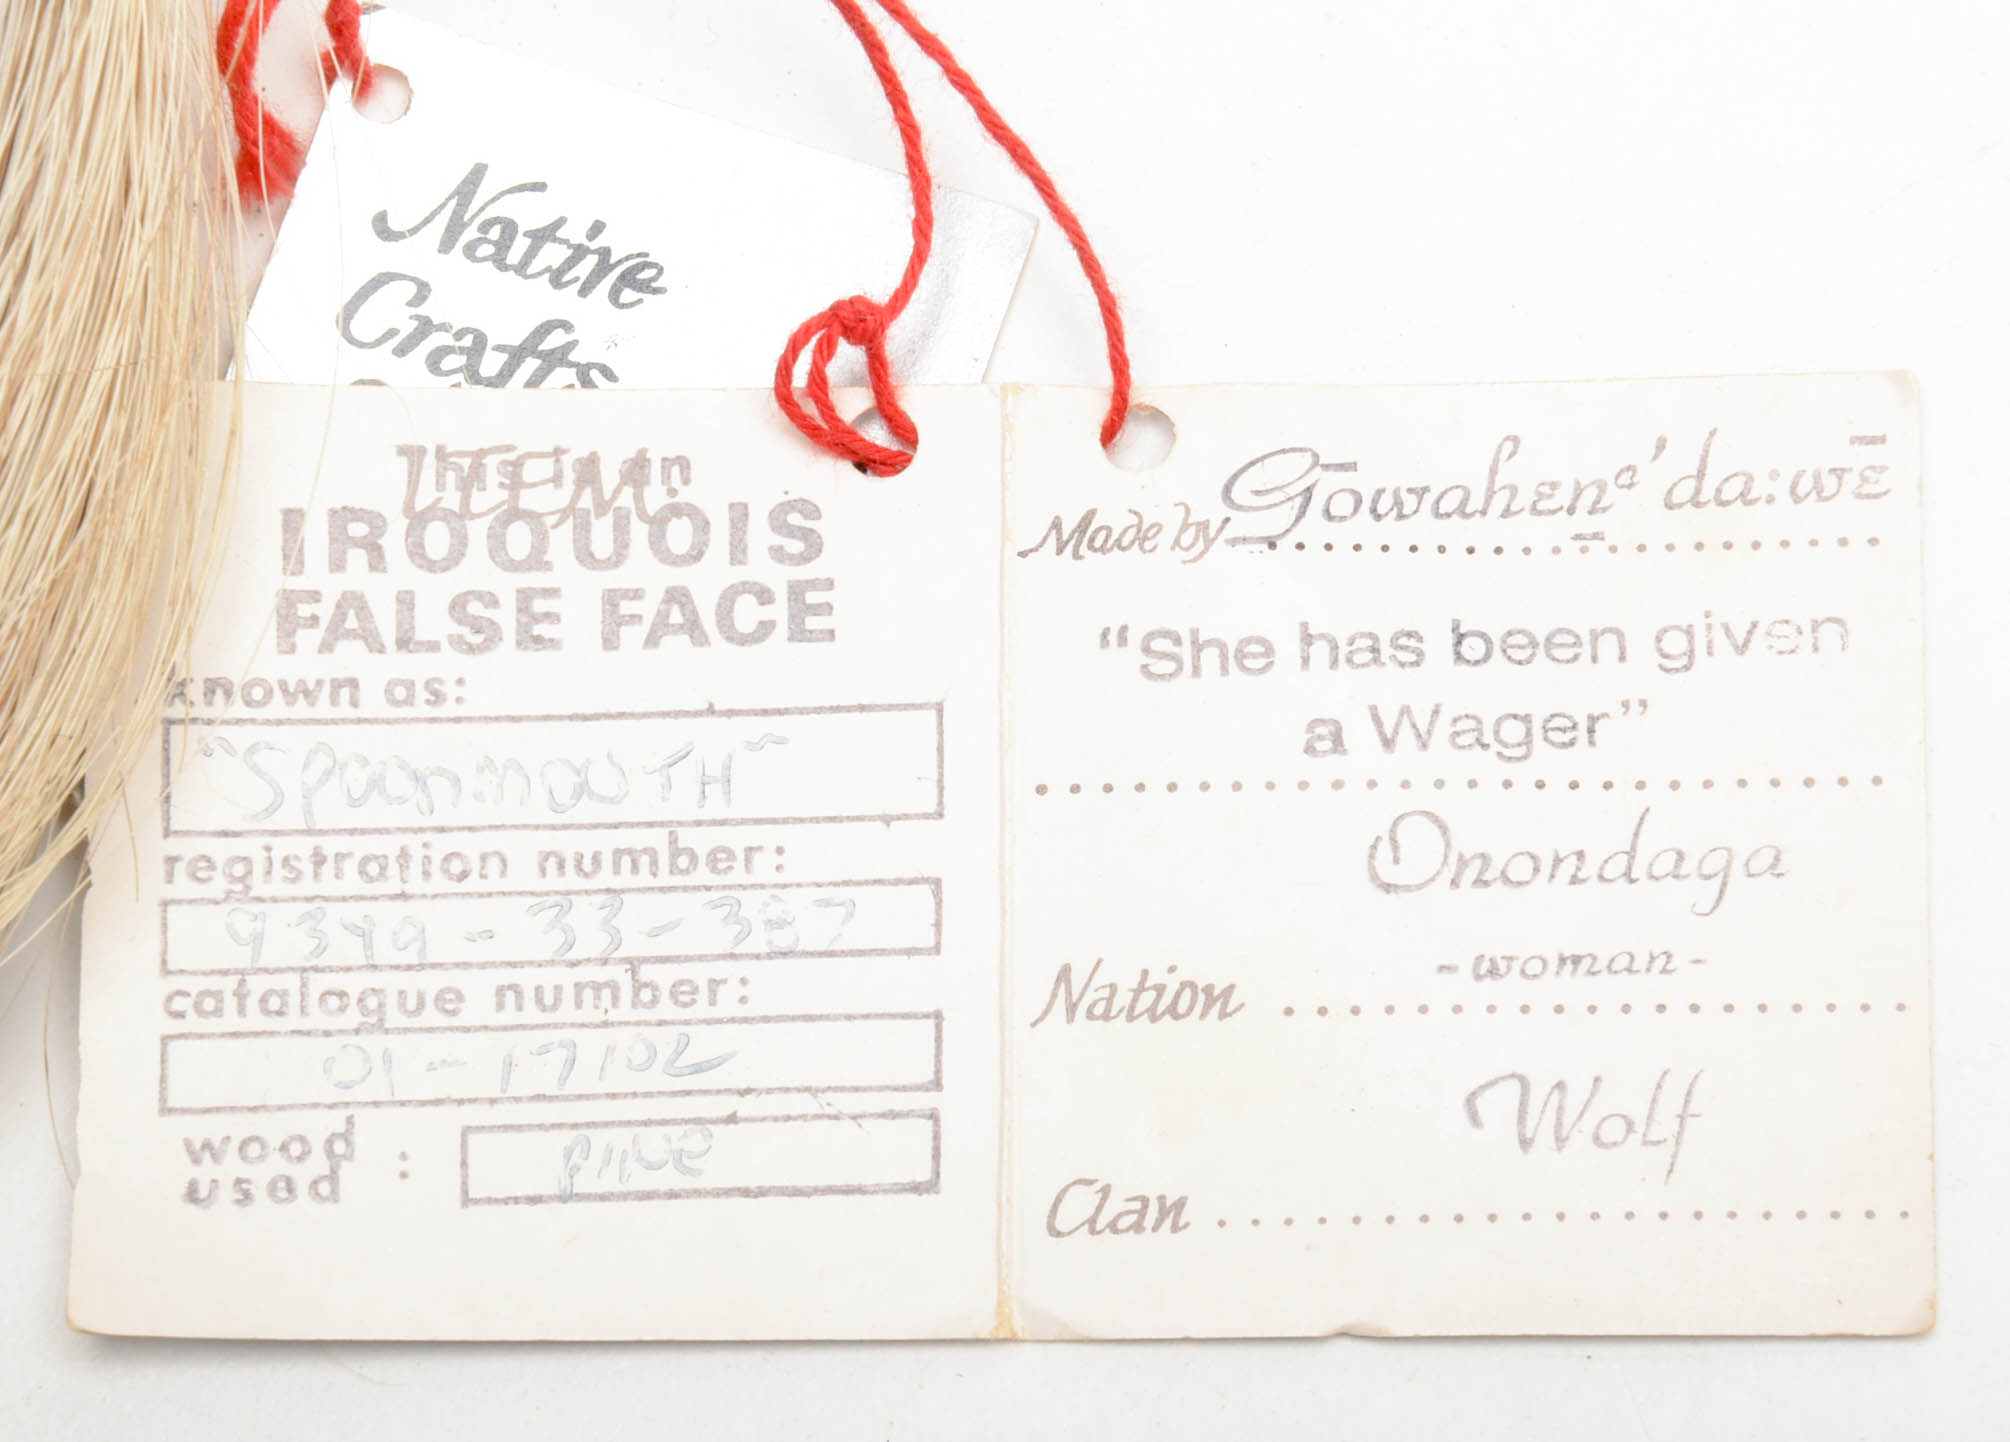 Native
Crafts
This is an
ITEM:
IROQUOIS
FALSE FACE
known as:
"SpoonmouTH"
registration number:
9349-33-387
catalogue number:
01-17102
wood
used :
pine
Made by Gōwahɛn̲ᵃ'da:wɛ̄
"She has been given
a Wager"
Onondaga
-woman-
Nation
Wolf
Clan